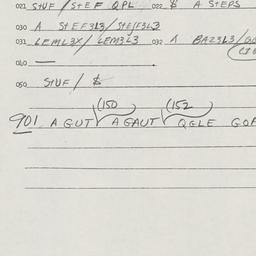 021 STUF / STEF QPL 022 $ A STEPS
030 A STEF3L3 / STEF3L3
031 LEML3X / LEM3L3 032 A BAZ3L3 /
040 —
050 STUF / $
(150) (152)
901 A GUT A GAUT QGLE GOF